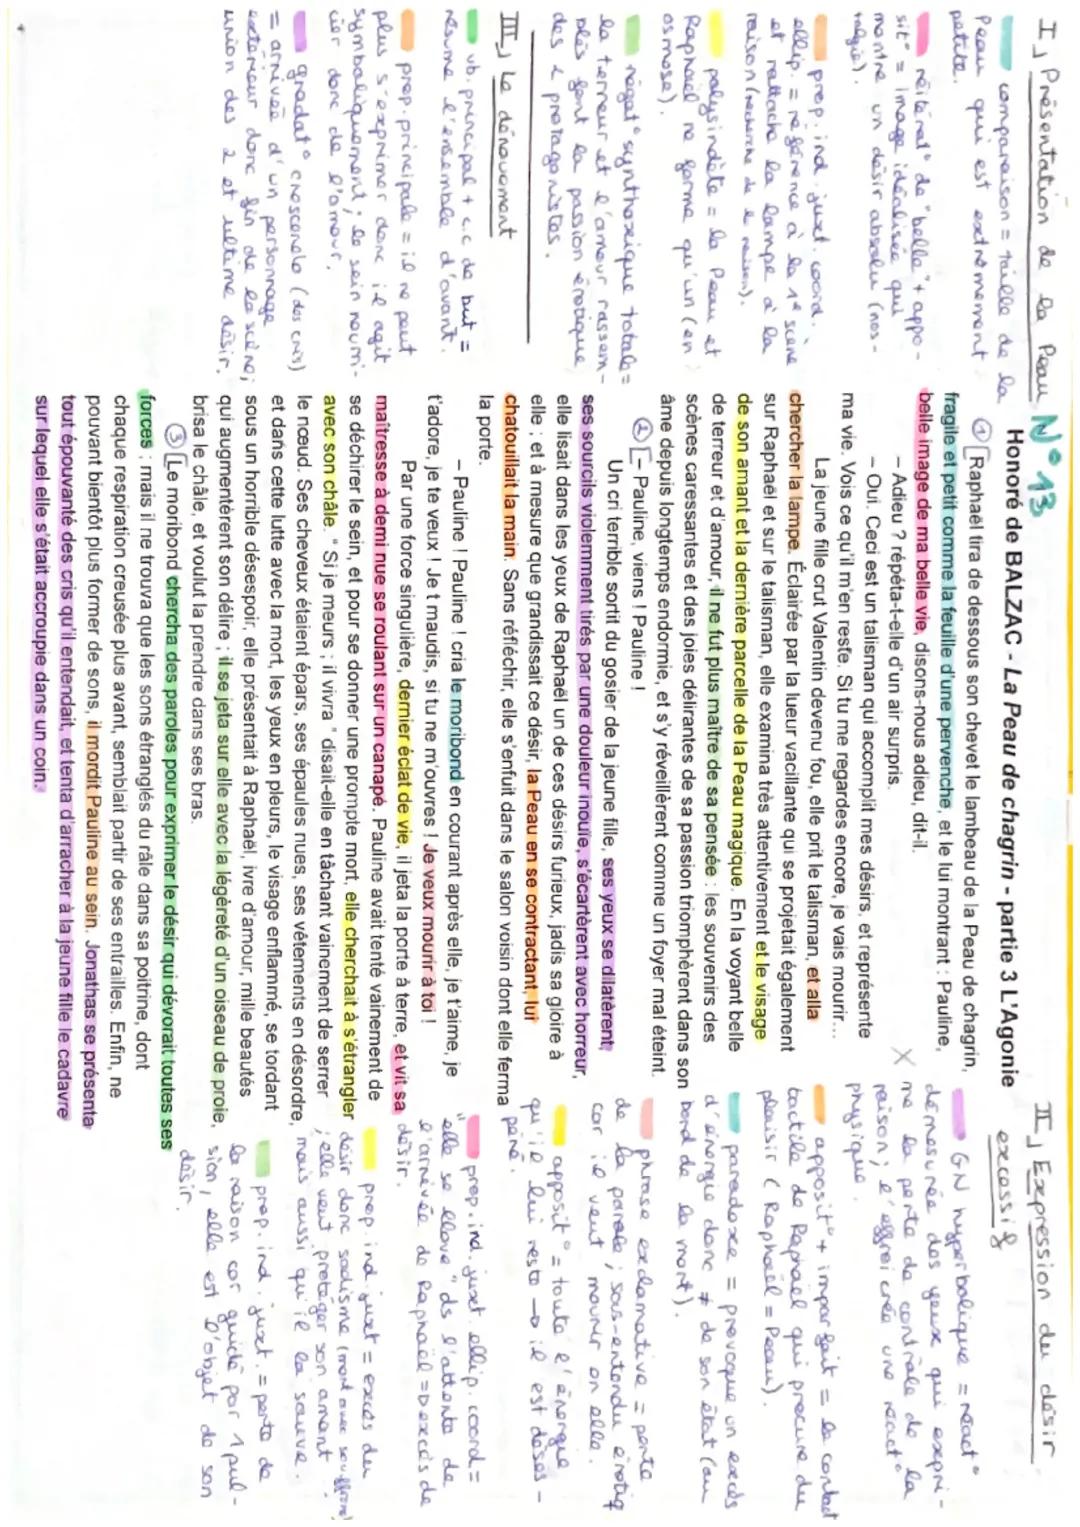 N° 13
Honoré de BALZAC - La Peau de chagrin - partie 3 L'Agonie
① [Raphaël tira de dessous son chevet le lambeau de la Peau de chagrin,
fragile et petit comme la feuille d'une pervenche, et le lui montrant : Pauline,
belle image de ma belle vie, disons-nous adieu, dit-il.
– Adieu ? répéta-t-elle d'un air surpris.
– Oui. Ceci est un talisman qui accomplit mes désirs, et représente
ma vie. Vois ce qu'il m'en reste. Si tu me regardes encore, je vais mourir...
La jeune fille crut Valentin devenu fou, elle prit le talisman, et alla
chercher la lampe. Éclairée par la lueur vacillante qui se projetait également
sur Raphaël et sur le talisman, elle examina très attentivement et le visage
de son amant et la dernière parcelle de la Peau magique. En la voyant belle
de terreur et d'amour, il ne fut plus maître de sa pensée : les souvenirs des
scènes caressantes et des joies délirantes de sa passion triomphèrent dans son
âme depuis longtemps endormie, et s'y réveillèrent comme un foyer mal éteint.
② [– Pauline, viens ! Pauline !
Un cri terrible sortit du gosier de la jeune fille, ses yeux se dilatèrent,
ses sourcils violemment tirés par une douleur inouïe, s'écartèrent avec horreur,
elle lisait dans les yeux de Raphaël un de ces désirs furieux, jadis sa gloire à
elle ; et à mesure que grandissait ce désir, la Peau en se contractant, lui
chatouillait la main. Sans réfléchir, elle s'enfuit dans le salon voisin dont elle ferma
la porte.
– Pauline ! Pauline ! cria le moribond en courant après elle, je t'aime, je
t'adore, je te veux ! Je t maudis, si tu ne m'ouvres ! Je veux mourir à toi !
Par une force singulière, dernier éclat de vie, il jeta la porte à terre, et vit sa
maîtresse à demi nue se roulant sur un canapé. Pauline avait tenté vainement de
se déchirer le sein, et pour se donner une prompte mort, elle cherchait à s'étrangler
avec son châle. " Si je meurs ; il vivra " disait-elle en tâchant vainement de serrer
le nœud. Ses cheveux étaient épars, ses épaules nues, ses vêtements en désordre,
et dans cette lutte avec la mort, les yeux en pleurs, le visage enflammé, se tordant
sous un horrible désespoir, elle présentait à Raphaël, ivre d'amour, mille beautés
qui augmentèrent son délire ; il se jeta sur elle avec la légèreté d'un oiseau de proie,
brisa le châle, et voulut la prendre dans ses bras.
③ [Le moribond chercha des paroles pour exprimer le désir qui dévorait toutes ses
forces ; mais il ne trouva que les sons étranglés du râle dans sa poitrine, dont
chaque respiration creusée plus avant, semblait partir de ses entrailles. Enfin, ne
pouvant bientôt plus former de sons, il mordit Pauline au sein. Jonathas se présenta
tout épouvanté des cris qu'il entendait, et tenta d'arracher à la jeune fille le cadavre
sur lequel elle s'était accroupie dans un coin.]
I, Présentation de la Peau
comparaison = taille de la
Peau qui est extrêmement
petite.
réitérat° de "belle" + appo-
sit° = image idéalisée qui
montre un désir absolu (nos-
talgie).
prop. ind. juxt coord.
ellip. = référence à la 1e scène
et rattache la lampe à la
raison (recherche de raison).
polysindète = la Peau et
Raphaël ne forme qu'un (en
osmose).
négat° synthaxique totale =
la terreur et l'amour rassem-
blés font la passion érotique
des 2 protagonistes.
III, Le dénouement
vb. principal + c.c de but =
résume l'ensemble d'avant.
prop. principale = il ne peut
plus s'exprimer donc il agit
symboliquement ; le sein nourri-
cier donc de l'amour.
gradat° crescendo (des cris)
= arrivée d'un personnage
extérieur donc fin de la scène ;
union des 2 et ultime désir.
II, Expression du désir
excessif
GN hyperbolique = réact°
démesurée des yeux qui expri-
me la perte de contrôle de la
raison ; l'effroi crée une réact°
physique.
apposit° + imparfait = le contact
tactile de Raphaël qui procure du
plaisir (Raphaël = Peau).
paradoxe = provoque un excès
d'énergie donc ≠ de son état (au
bord de la mort).
phrase exclamative = perte
de la parole ; sous-entendu érotiq
car il veut mourir en elle.
apposit° = toute l'énergie
qu'il lui reste → il est déses-
péré.
prop. ind. juxt. ellip. coord =
elle se élove "ds l'attente de
l'arrivée de Raphaël => excès de
désir.
prop. ind. juxt = excès du
désir donc sadisme (mort avec souffrance)
; elle veut protéger son amant
mais aussi qu'il la sauve.
prop. ind. juxt. = perte de
la raison car guidé par 1 pul-
sion, elle est l'objet de son
désir.